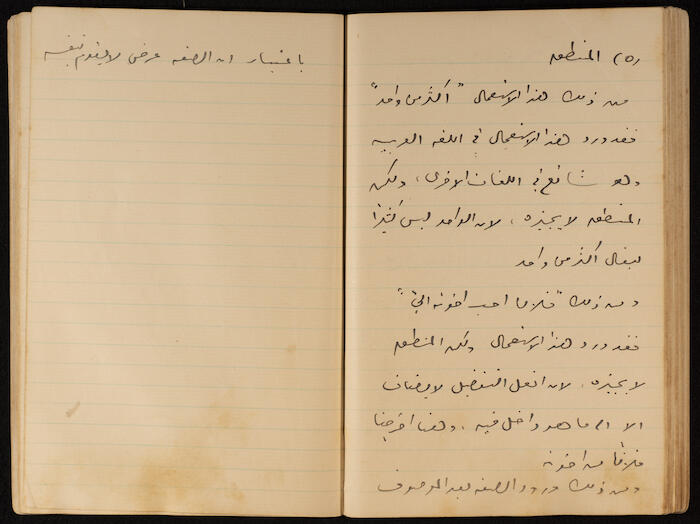 (٥) المنطق
من ذلك هذا الاستعمال "اكثر من واحد"
فقد ورد هذا الاستعمال في اللغة العربية
وهو شائع في اللغات الاخرى، ولكن
المنطق لا يجيزه، لان الواحد ليس كثيرًا
ليقال اكثر من واحد
ومن ذلك "فلان احب اخوته اليّ"
فقد ورد هذا الاستعمال ولكن المنطق
لا يجيزه، لان افعل التفضيل لا يضاف
الا الى ما هو داخل فيه، وهنا اخرجنا
فلانًا من اخوته
ومن ذلك ورود الصفة بعد الموصوف
باعتبار ان الصفة عرض لا يقوم بنفسه